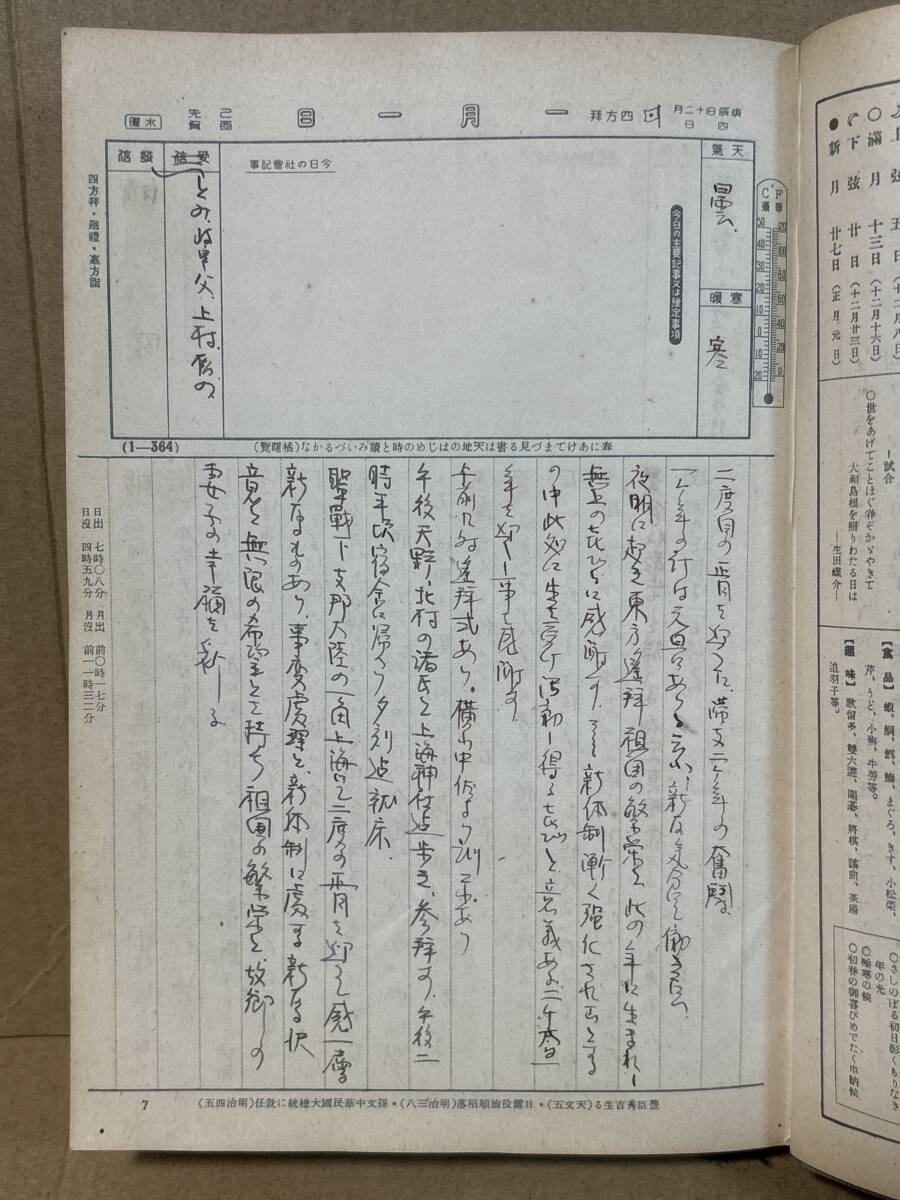 庚辰旧十二月四日
四方拜
一月一日
己酉
先賀
水曜
天氣
曇
寒暖
寒
C F
今日の主要記事又は豫定事項
今日の社會記事
受信
とみ、岐阜父、上村、
發信
四方拜・廻禮・惠方詣
春にあけてまづ見る書は天地のはじめの時と讀みいづるかな(橘曙覽)
(1—364)
二度目の正月を迎える、滞支二ヶ年の奮闘、
一ケ年の計は元旦にあると云ふ、新な気分で働きたい、
夜明に起き東方遙拜祖国の繁栄と此の年に生まれし
無上の喜びに感謝す、新体制漸く强化されんとする
の中此処に生を享け活動し得る喜びと意義ある二千六百
年を迎へし事を感謝す。
午前九時遙拜式あり。横山中佐より訓示あり
午後天野、北村の諸氏と上海神社迄歩き、参拜す、午後二
時半頃宿舍に帰へり夕刻迄就床、
聖戰下支那大陸の一角上海にて二度の正月を迎へて感一層
新なるものあり、事変處理と、新体制に處する新なる決
意と無限の希望とを持ち祖国の繁栄と、故郷の
妻子の幸福を祈る
日出 七時〇八分 月出 前〇時一七分
日沒 四時五九分 月沒 前一一時三二分
豐臣秀吉生る(天文五)＊日露役旅順陷落(明治三八)＊孫文中華民國大總統に就任(明治四五)
7
上弦 五日(十二月八日)
〇滿月 十三日(十二月十六日)
下弦 廿日(十二月廿三日)
●新月 廿七日(正月元日)
—試合
〇世をあげてことほぐ春ぞかゞやきて
大和島根を照りわたる日は
—生田蝶介—
【食品】 蝦、鯛、鱈、鰤、まぐろ、きす、小松菜、
芹、うど、小蕪、牛蒡等。
【趣味】 歌留多、雙六遊、圍碁、將棋、謠曲、茶湯
追羽子等。
〇さしのぼる初日影くもりなき
年の光
〇極寒の候
〇初春の御喜びめでたく申納候